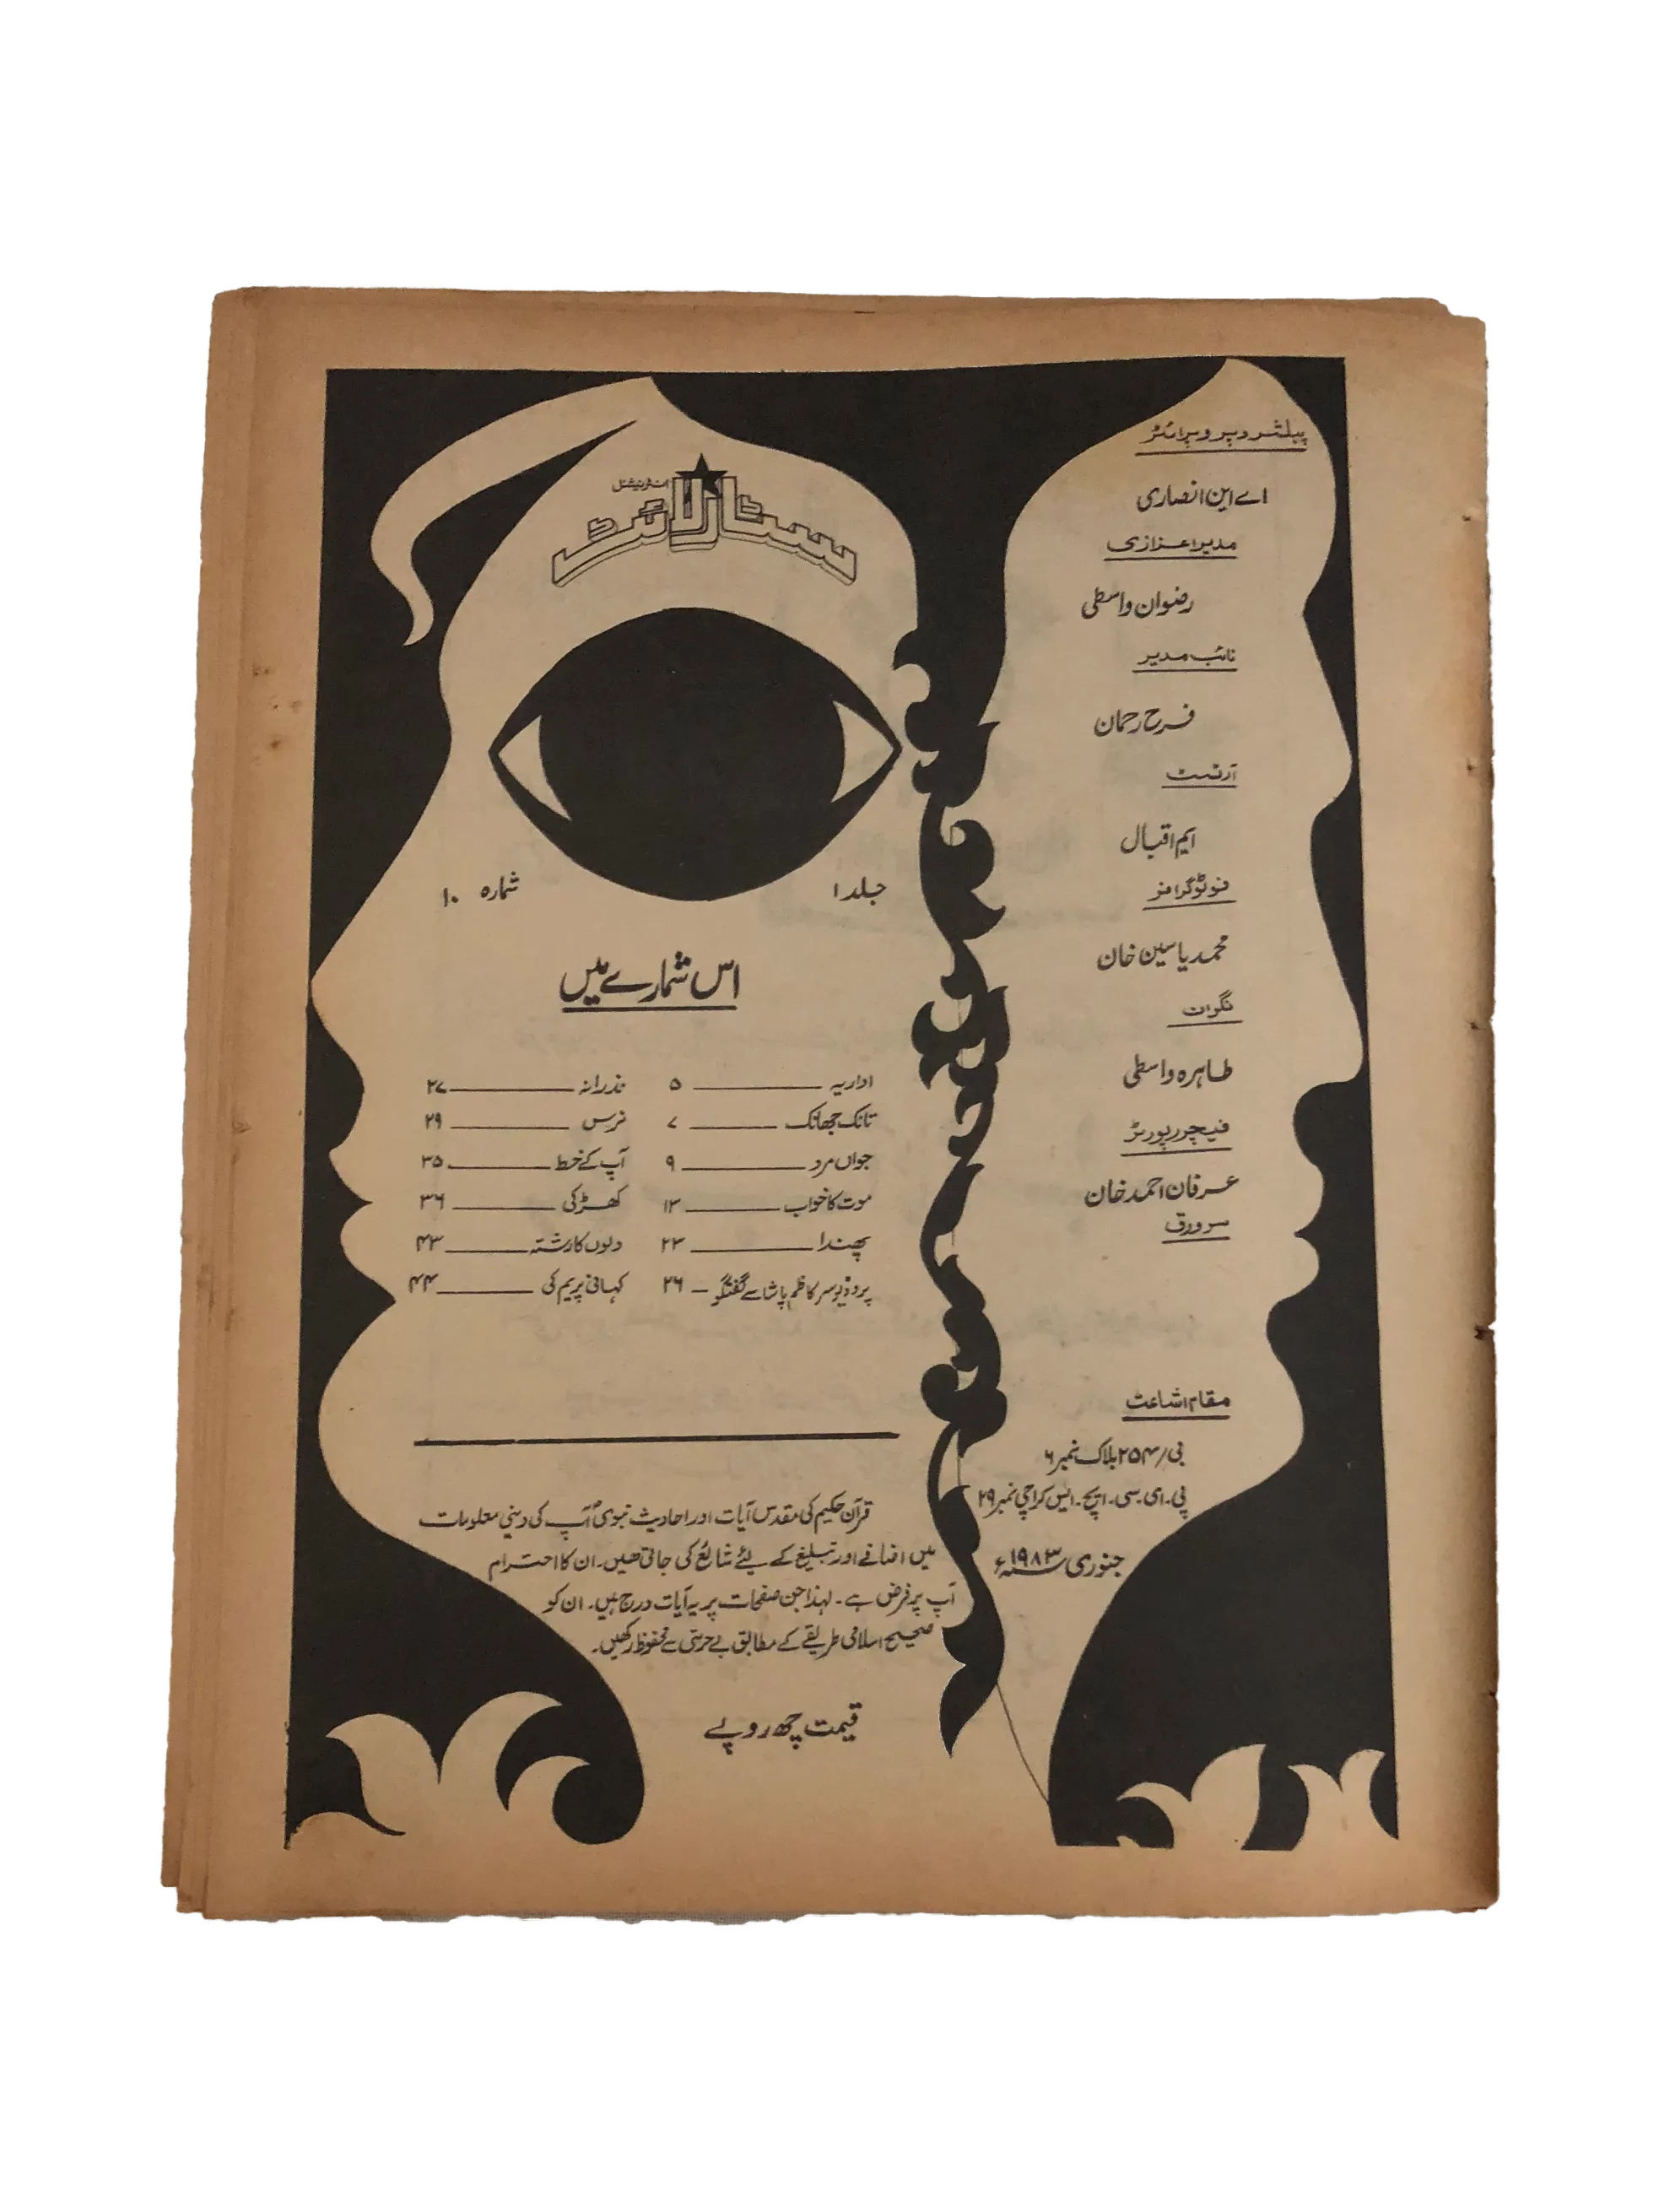 پبلشر و پروپرائٹر
اے این انصاری
مدیر اعزازی
رضوان واسطی
نائب مدیر
فرح رحمان
آرٹسٹ
ایم اقبال
فوٹو گرافر
محمد یاسین خان
نگران
طاہرہ واسطی
فیچر رپورٹر
عرفان احمد خان
سرورق
مقام اشاعت
بی/۲۵۴ بلاک نمبر ۶
پی۔ای۔سی۔ایچ۔ایس کراچی نمبر ۲۹
جنوری ۱۹۸۳ء
انٹرنیشنل
سٹار لائٹ
جلد ۱
شمارہ ۱۰
اس شمارے میں
اداریہ ــــــ ۵
تانک جھانک ــــــ ۷
جواں مرد ــــــ ۹
موت کا خواب ــــــ ۱۳
پھندا ــــــ ۲۳
پروڈیوسر کاظم پاشا سے گفتگو ــ ۲۶
نذرانہ ــــــ ۲۷
نرس ــــــ ۲۹
آپ کے خط ــــــ ۳۵
کھڑکی ــــــ ۳۶
دلوں کا رشتہ ــــــ ۴۳
کہانی پریم کی ــــــ ۴۴
قرآن حکیم کی مقدس آیات اور احادیث نبویؐ آپ کی دینی معلومات
میں اضافے اور تبلیغ کے لئے شائع کی جاتی ھیں۔ ان کا احترام
آپ پر فرض ہے۔ لہذا جن صفحات پر یہ آیات درج ہیں۔ ان کو
صحیح اسلامی طریقے کے مطابق بے حرمتی سے محفوظ رکھیں۔
قیمت چھ روپے